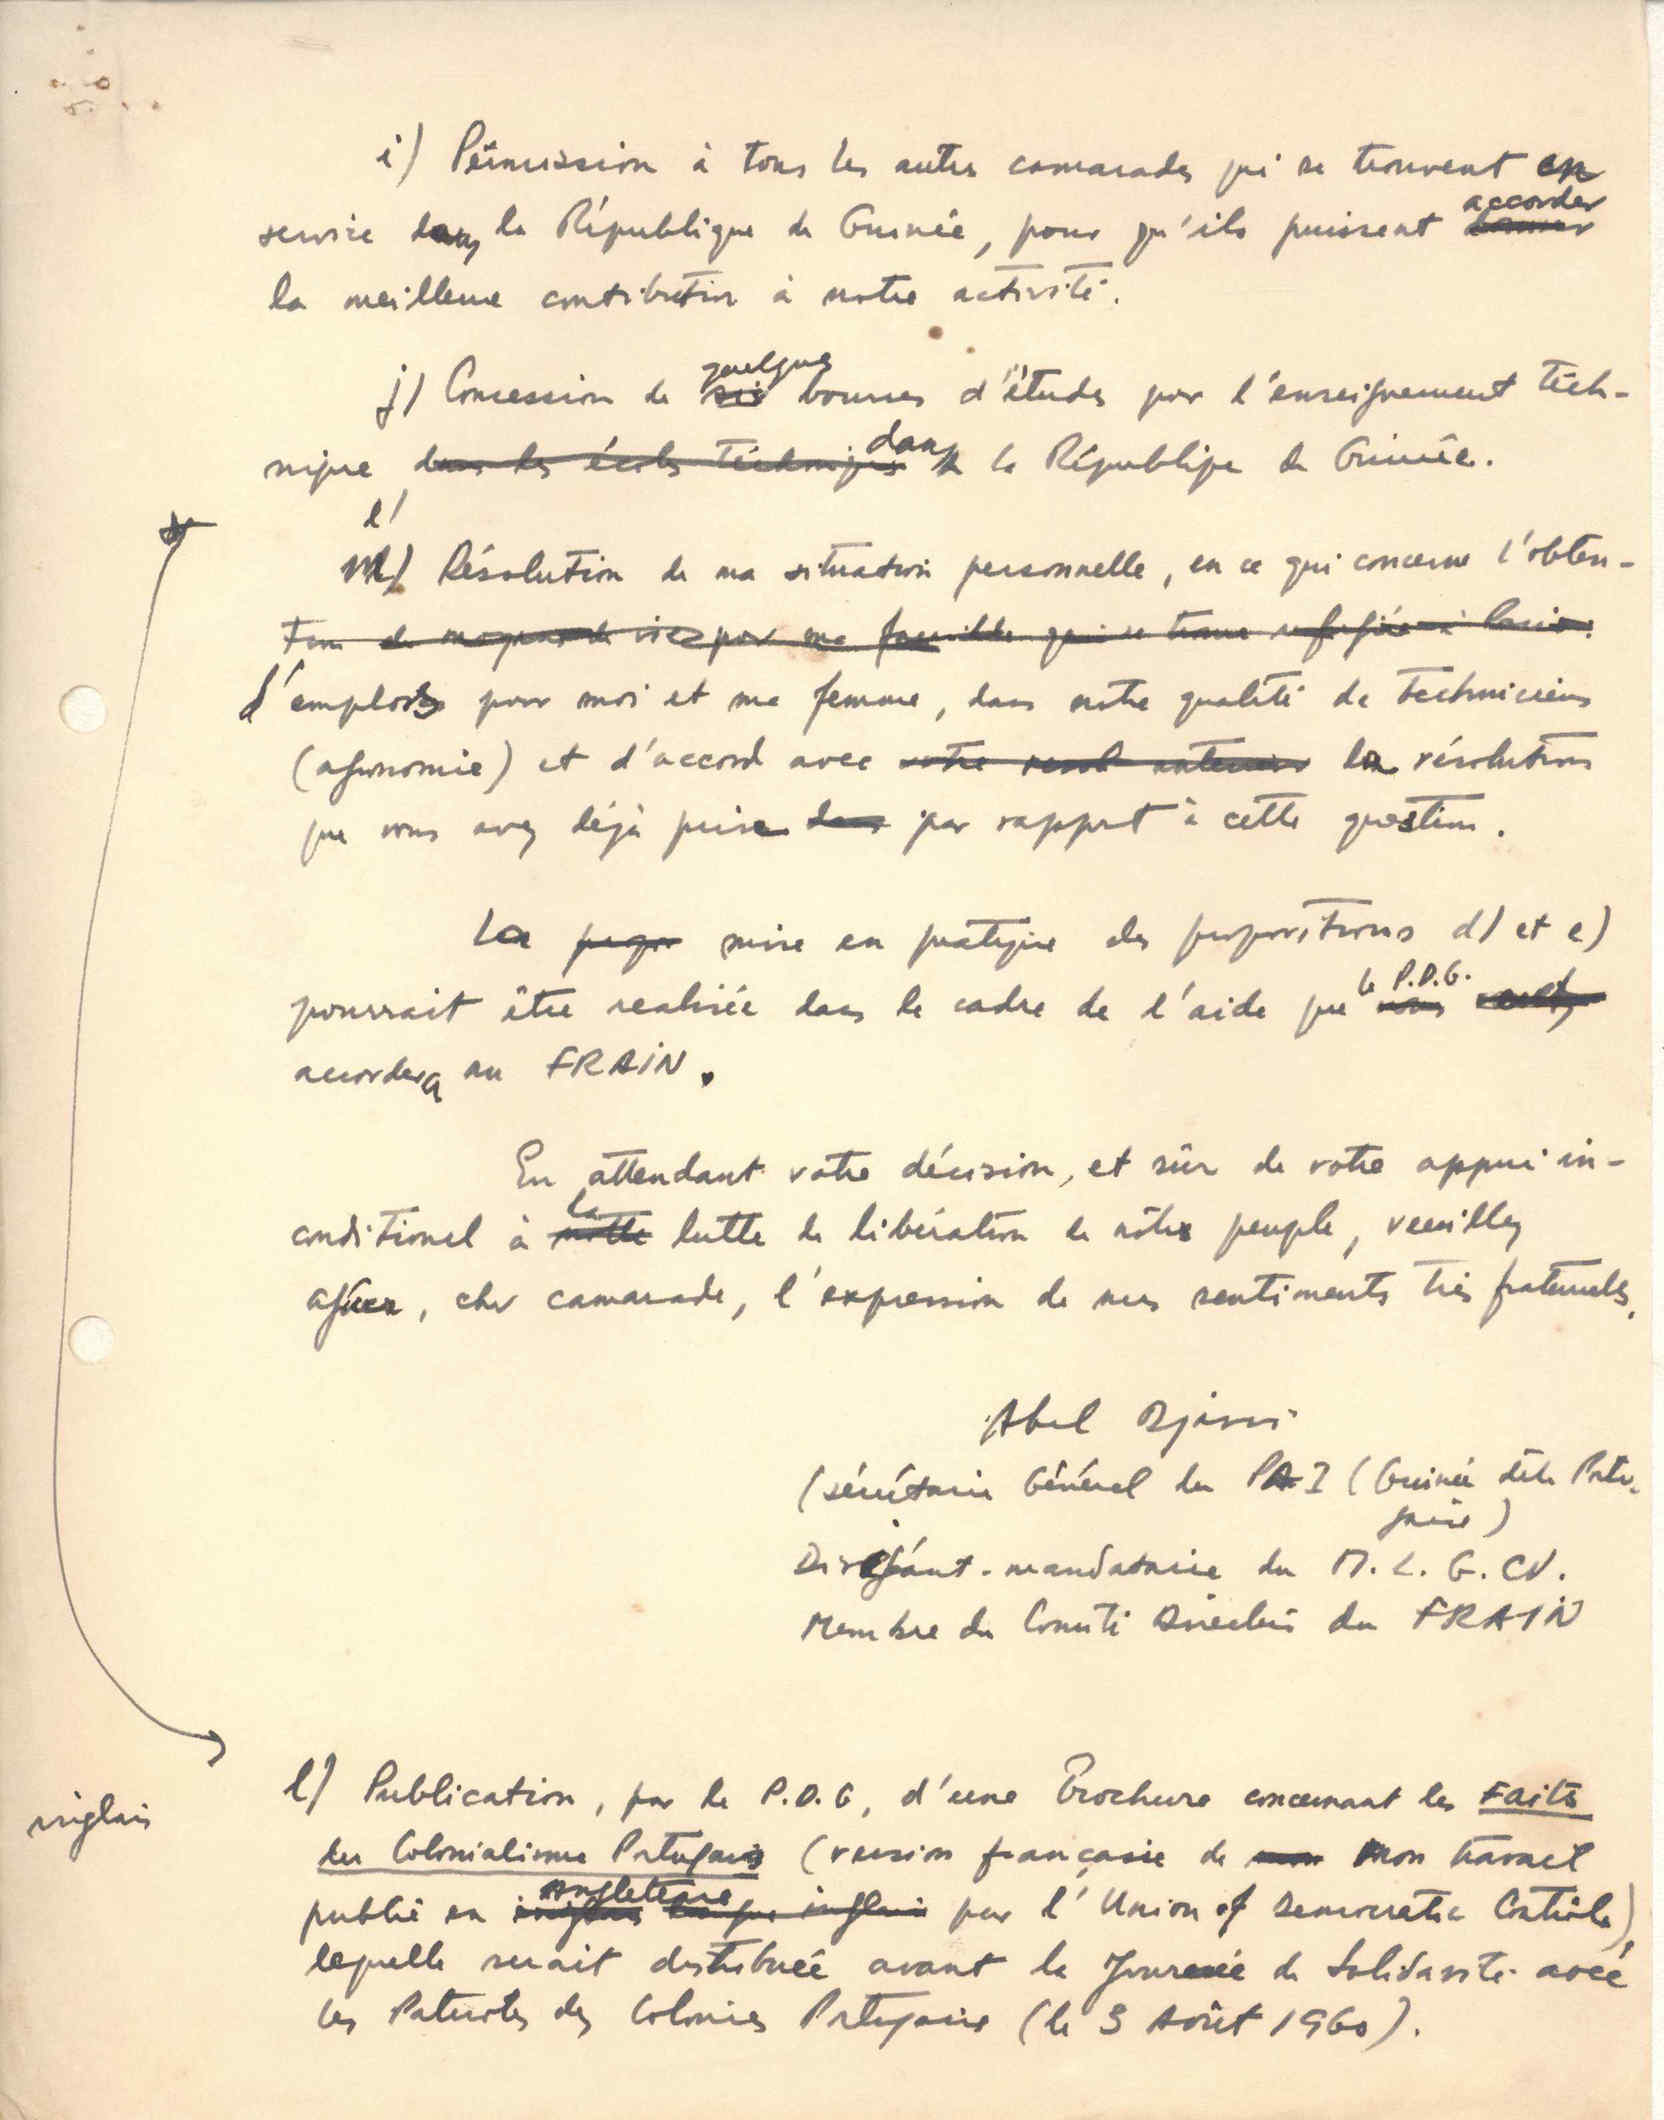 i) Permission à tous les autres camarades qui se trouvent en
service dans la République de Guinée, pour qu'ils puissent accorder
la meilleure contribution à notre activité.
j) Concession de quelques bourses d'études par l'enseignement téch-
nique dans les écoles téchniques dans la République de Guinée.
l'
m) Résolution de ma situation personnelle, en ce qui concerne l'obten-
tion de moyens de vie par ma famille qui se trouve refugiée à
d'emplois pour moi et ma femme, dans notre qualité de techniciens
(agronomie) et d'accord avec la résolution
que vous avez déjà prise dans par rapport à cette question.
La mise en pratique des propositions d) et e)
pourrait être realisée dans le cadre de l'aide que le P.D.G. vous
accordera au FRAIN.
En attendant votre décision, et sûr de votre appui in-
conditionel à la notre lutte de libération de nôtre peuple, veuillez
agréer, cher camarade, l'expression de mes sentiments très fraternels.
Abel Djassi
(sécrétaire Général du PAI (Guinée dite Portu-
gaise)
Dirigeánt-mandataire du M.L.G.CV.
Membre du Comité Directeur du FRAIN
l) Publication, par le P.D.G, d'une Brochure concernant les Faits
du Colonialisme Portugais (version françasie de mon travail
publié en angleterre langue inglais par l'Union of Democratic Controle),
lequelle serait distribuée avant la Journée de Solidarité avec
inglais
les Patriotes des Colonies Portugaise (le 3 Aôut 1960).